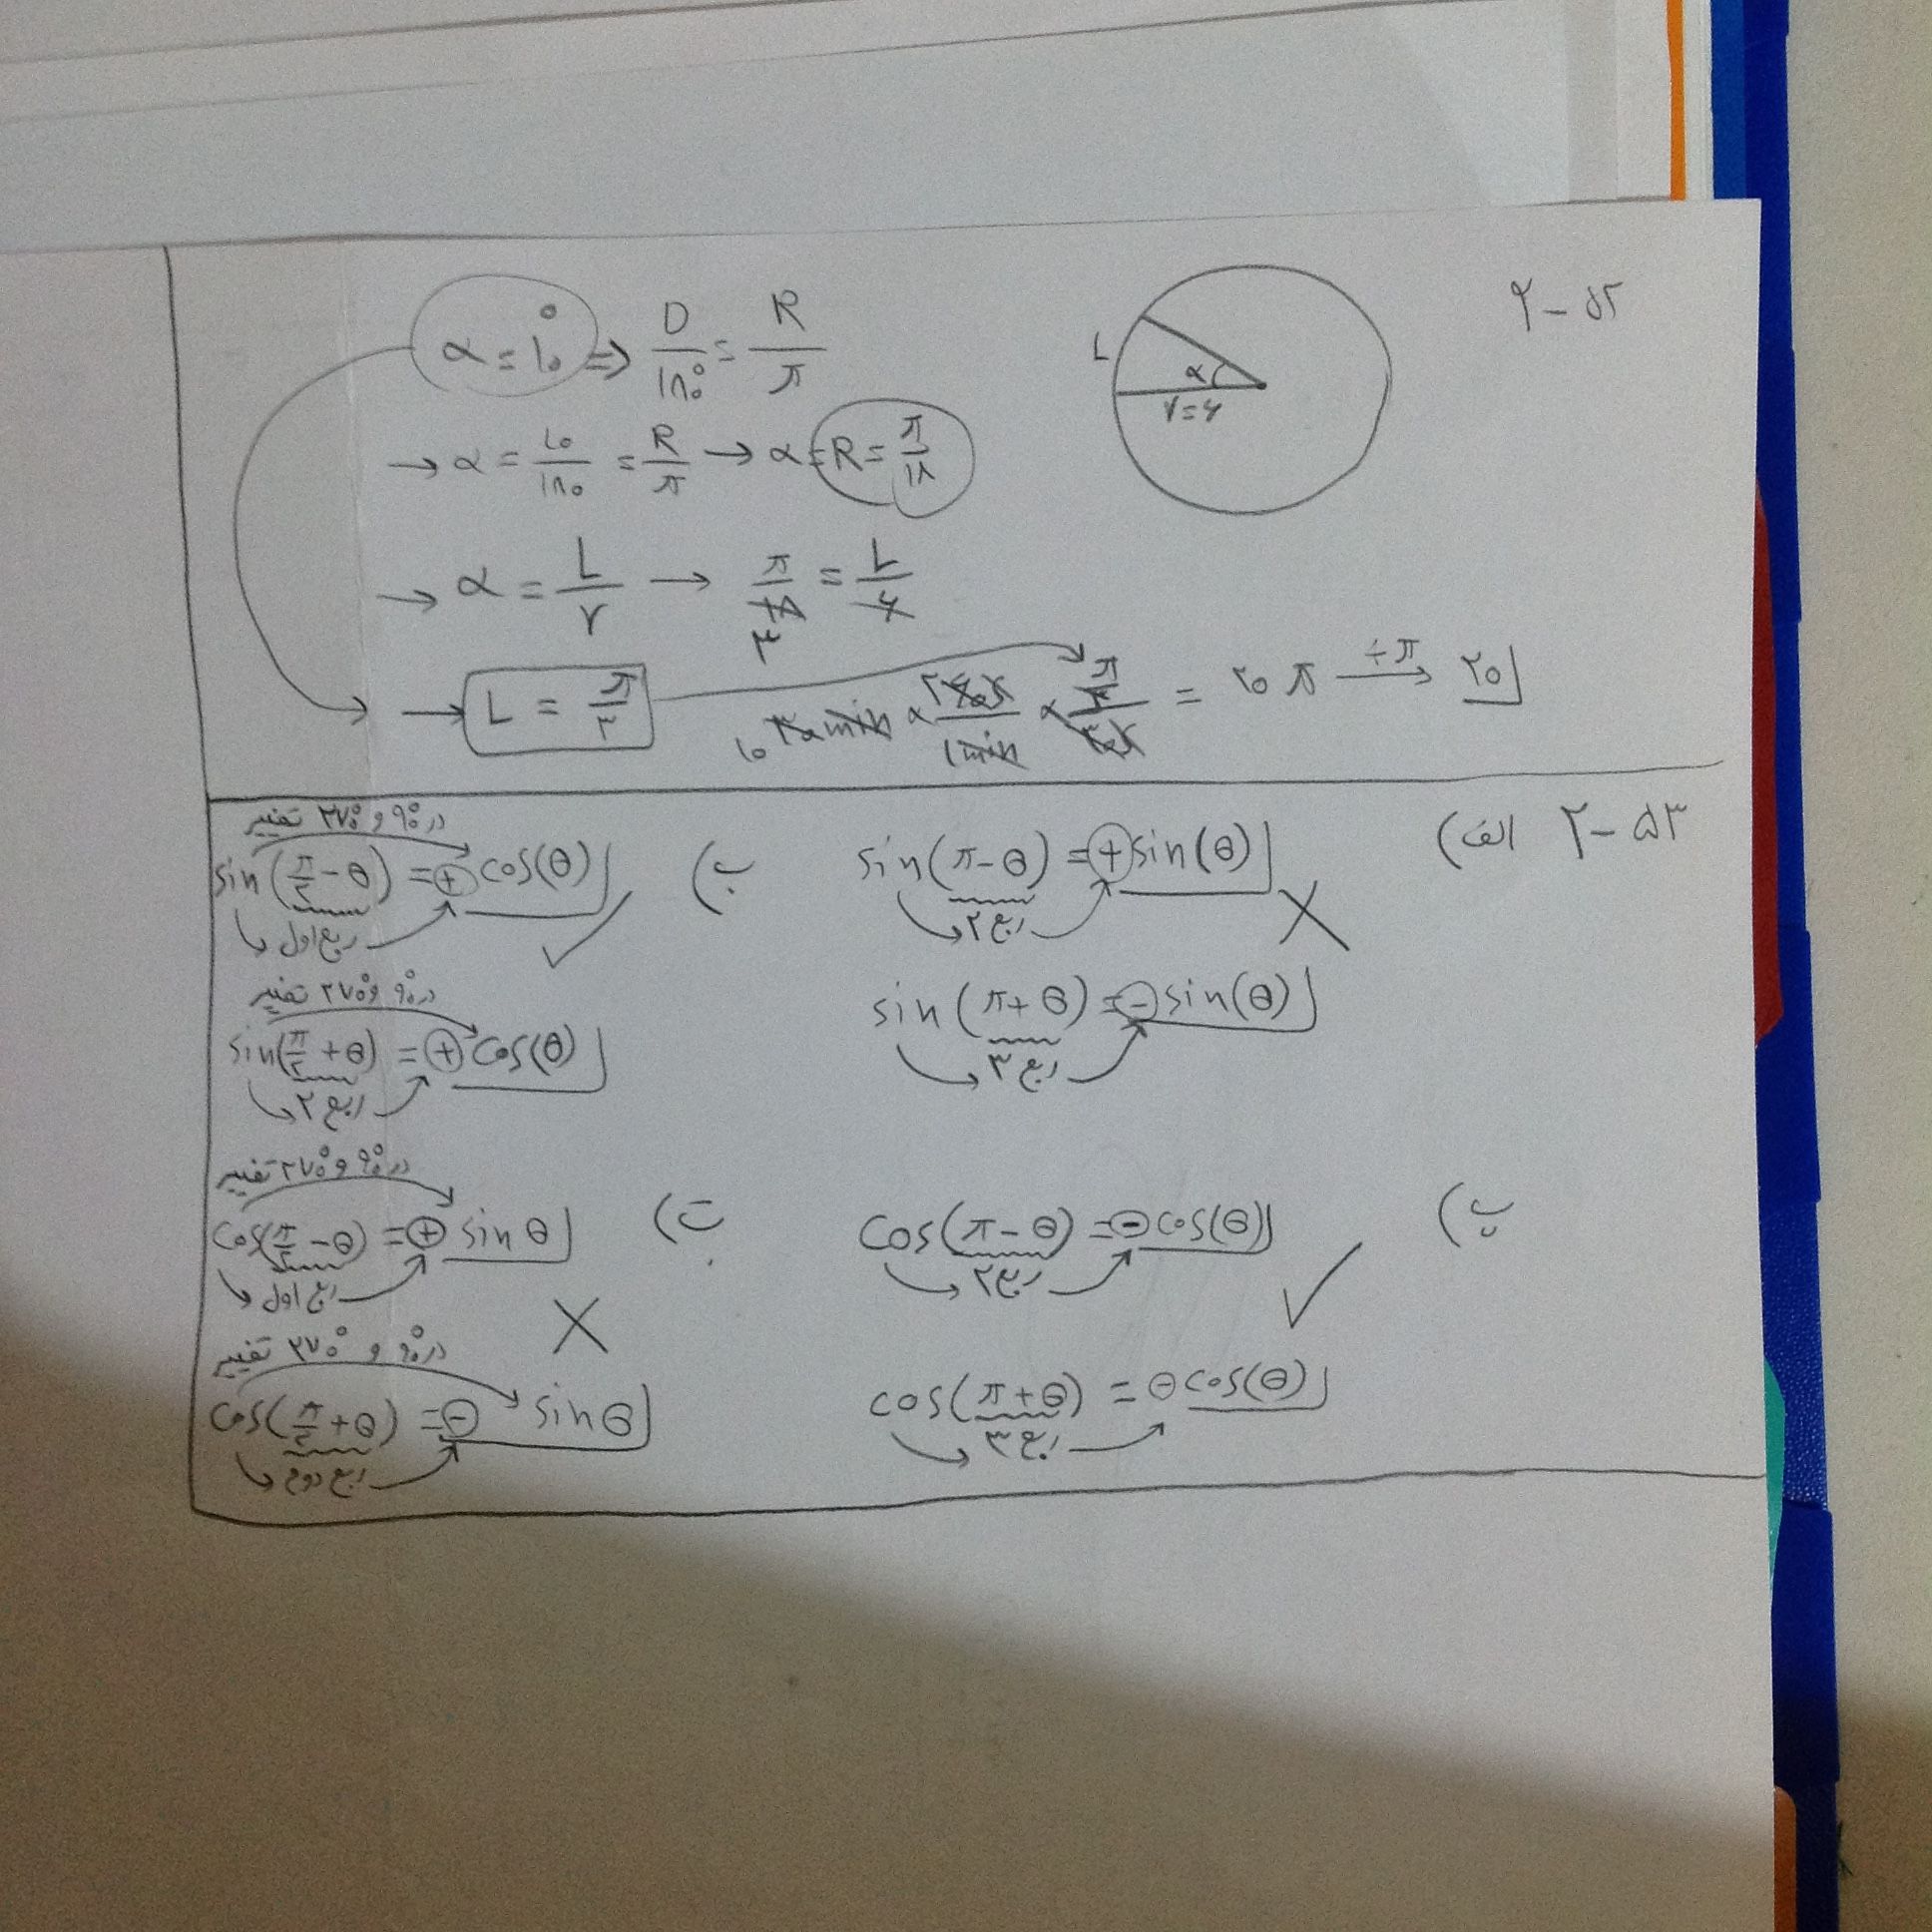 ۵۲-۲
α = ۱۰° ⇒ D/۱۸۰° = R/π
L
α
r=۶
→ α = ۱۰/۱۸۰ = R/π → α = R = π/۱۸
→ α = L/r → π/۱۸ = L/۶
۳
→ L = π/۳
۱۰ ۳۰ min × ۶۰s/۱min × π/۳/۳۰s = ۲۰π ÷π→ ۲۰
۵۳-۲ الف)
sin(π-θ) = + sin(θ)
ربع ۲
×
sin(π+θ) = - sin(θ)
ربع ۳
ب)
در ۹۰° و ۲۷۰° تغییر
sin(π/۲-θ) = + cos(θ)
ربع اول
✓
در ۹۰° و ۲۷۰° تغییر
sin(π/۲+θ) = + cos(θ)
ربع ۲
پ)
cos(π-θ) = - cos(θ)
ربع ۲
✓
cos(π+θ) = - cos(θ)
ربع ۳
ت)
در ۹۰° و ۲۷۰° تغییر
cos(π/۲-θ) = + sin θ
ربع اول
×
در ۹۰° و ۲۷۰° تغییر
cos(π/۲+θ) = - sin θ
ربع دوم